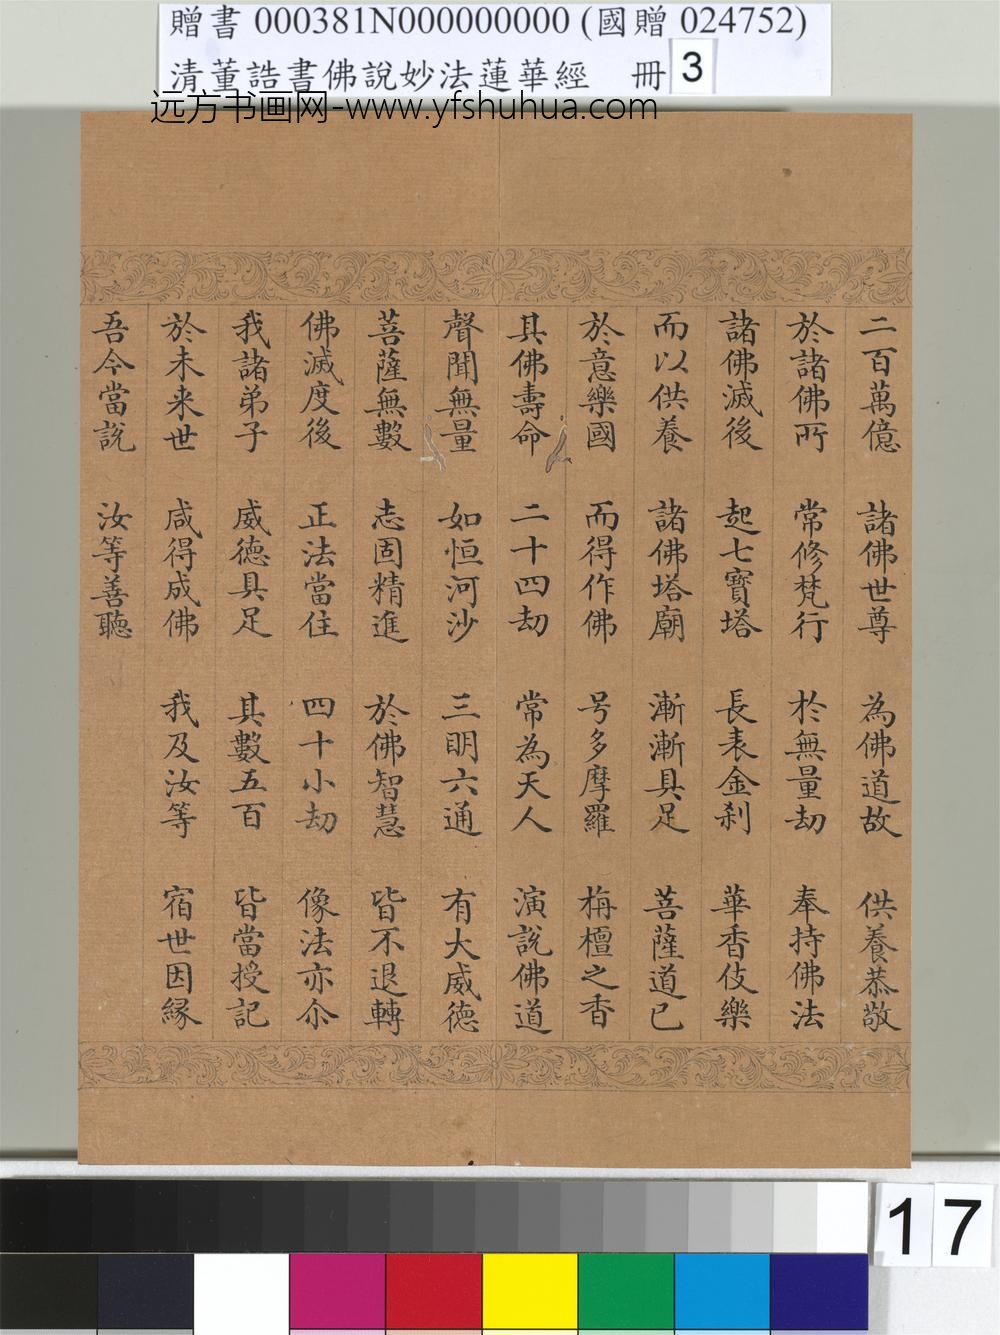 贈書 000381N000000000 (國贈 024752)
清董誥書佛說妙法蓮華經 冊 3
远方书画网-www.yfshuhua.com
二百萬億 諸佛世尊 為佛道故 供養恭敬
於諸佛所 常修梵行 於無量劫 奉持佛法
諸佛滅後 起七寶塔 長表金剎 華香伎樂
而以供養 諸佛塔廟 漸漸具足 菩薩道已
於意樂國 而得作佛 号多摩羅 栴檀之香
其佛壽命 二十四劫 常為天人 演說佛道
聲聞無量 如恒河沙 三明六通 有大威德
菩薩無數 志固精進 於佛智慧 皆不退轉
佛滅度後 正法當住 四十小劫 像法亦尒
我諸弟子 威德具足 其數五百 皆當授記
於未来世 咸得成佛 我及汝等 宿世因緣
吾今當說 汝等善聽
17